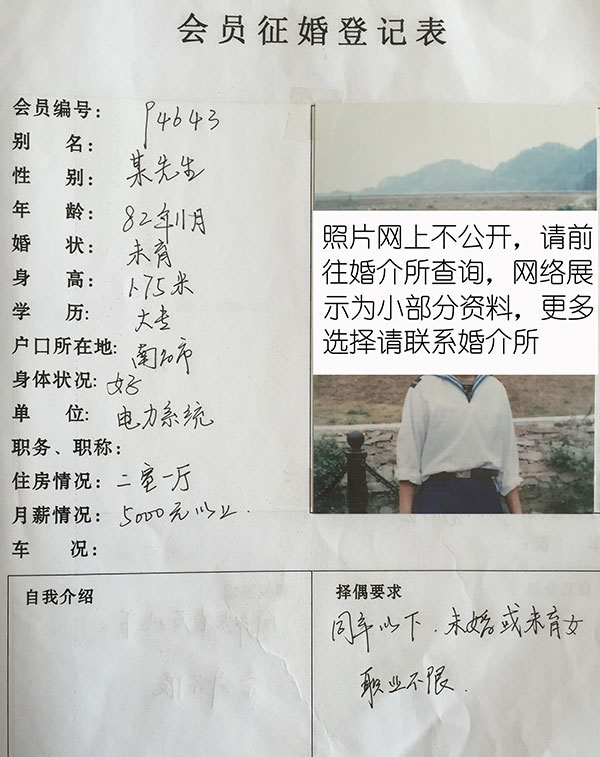 会员征婚登记表
会员编号: P4643
别 名: 某先生
性 别:
年 龄: 82年11月
婚 状: 未育
身 高: 1.75米
学 历: 大专
户口所在地:
身体状况: 好
单 位: 电力系统
职务、职称:
住房情况: 二室一厅
月薪情况: 5000元以上.
车 况:
照片网上不公开，请前
往婚介所查询，网络展
示为小部分资料，更多
选择请联系婚介所
自我介绍
择偶要求
同年以下.未婚或未育女
职业不限.